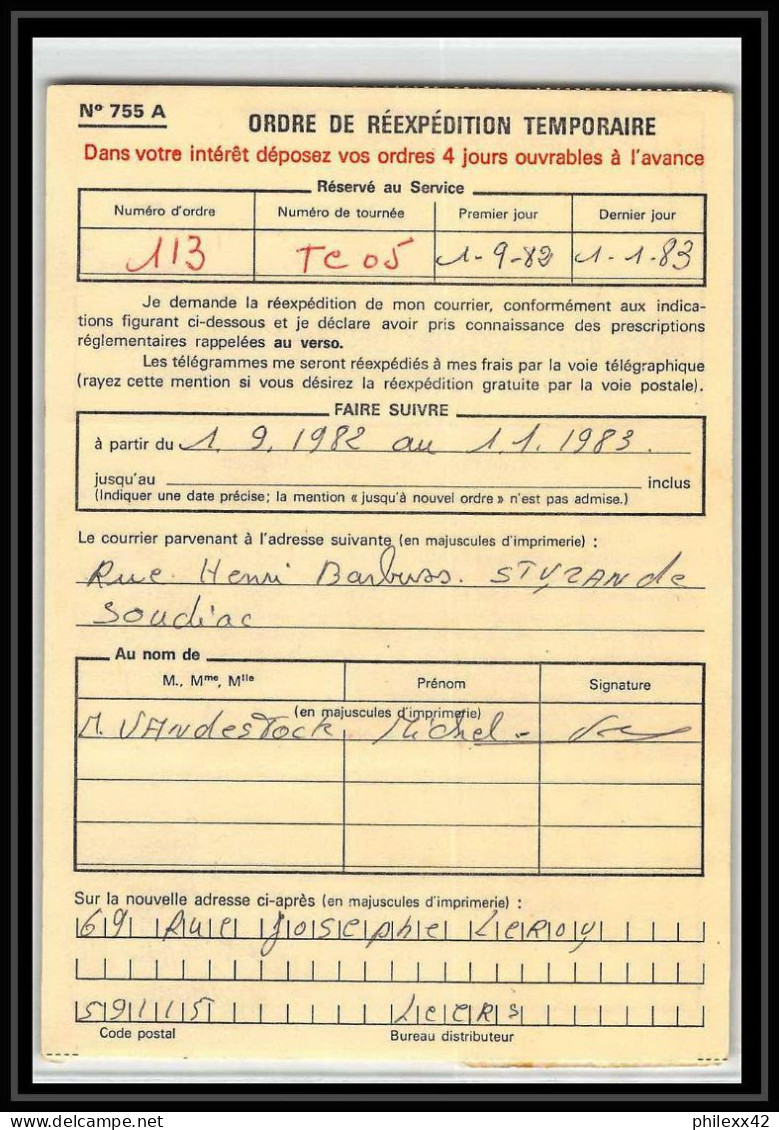 N° 755 A
ORDRE DE RÉEXPÉDITION TEMPORAIRE
Dans votre intérêt déposez vos ordres 4 jours ouvrables à l'avance
Réservé au Service
Numéro d'ordre Numéro de tournée Premier jour Dernier jour
113 TC 05 1-9-82 1-1-83
Je demande la réexpédition de mon courrier, conformément aux indica-
tions figurant ci-dessous et je déclare avoir pris connaissance des prescriptions
réglementaires rappelées au verso.
Les télégrammes me seront réexpédiés à mes frais par la voie télégraphique
(rayez cette mention si vous désirez la réexpédition gratuite par la voie postale).
FAIRE SUIVRE
à partir du 1. 9. 1982 au 1.1.1983.
jusqu'au inclus
(Indiquer une date précise; la mention « jusqu'à nouvel ordre » n'est pas admise.)
Le courrier parvenant à l'adresse suivante (en majuscules d'imprimerie) :
Rue Henri Barbuss. ST YZAN de
Soudiac
Au nom de
M., Mme, Mlle Prénom Signature
(en majuscules d'imprimerie)
M. VANdesTock Michel -
Sur la nouvelle adresse ci-après (en majuscules d'imprimerie) :
69 Rue Josephe LeRoy
59115 LeeRs
Code postal Bureau distributeur
philexx42